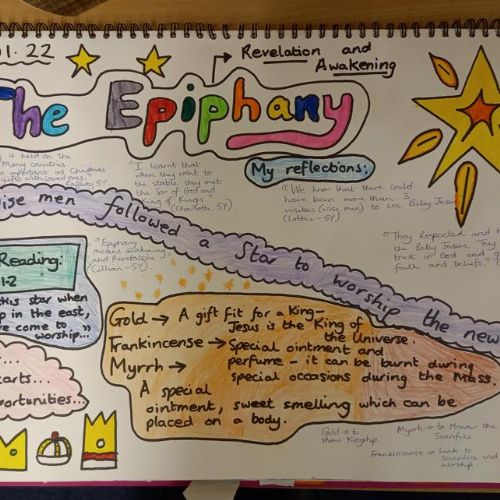 01.22
Revelation and
Awakening
The Epiphany
is held on the
Many countries
important as Christmas
gifts with loved ones.
5Y
"I learnt that
when they went to
the stable, they met
the Son of God and
King of Kings"
(Charlotte 5Y)
My reflections:
"We know that there could
have been more than 3
visitors (wise men) to see Baby Jesus"
(Lottie - 5Y)
"They Respected and
the Baby Jesus. They
trust in God and
faith and beliefs."
wise men followed a star to worship the new
"Epiphany
means
and Revelation"
(Cillian - 5Y)
Reading:
1-2
this star when
up in the east,
come to
worship..."
Gold → A gift fit for a King -
Jesus is the King of
the Universe.
Frankincense → Special ointment and
perfume - it can be burnt during
special occasions during the Mass.
Myrrh →
A special
ointment, sweet smelling which can be
placed on a body.
Gold → to
show Kingship.
Myrrh → to the
Sacrifice.
Frankincense → Link to
Sacrifice and
worship.